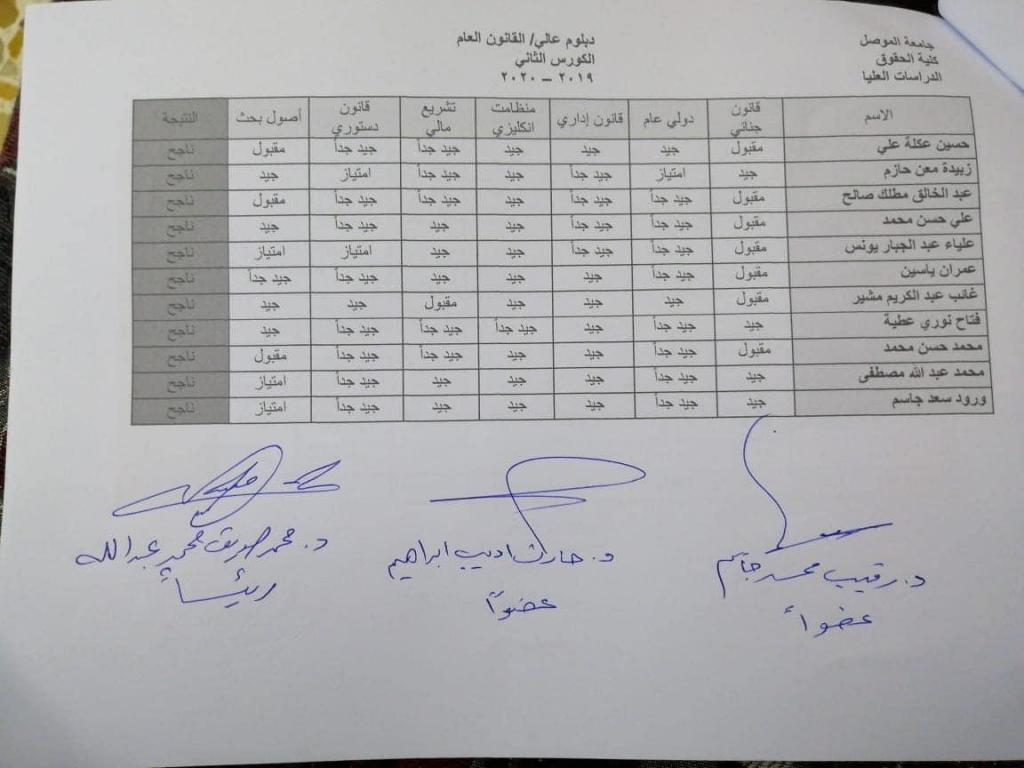 جامعة الموصل
كلية الحقوق
الدراسات العليا
دبلوم عالي/ القانون العام
الكورس الثاني
٢٠١٩ – ٢٠٢٠
الاسم قانون جنائي دولي عام قانون إداري منظمات انكليزي تشريع مالي قانون دستوري أصول بحث النتيجة
حسين عكلة علي مقبول جيد جيد جيد جيد جداً جيد جداً مقبول ناجح
زبيدة معن حازم جيد امتياز جيد جداً جيد جيد جداً امتياز جيد ناجح
عبد الخالق مطلك صالح مقبول جيد جداً جيد جداً جيد جيد جداً جيد جداً مقبول ناجح
علي حسن محمد مقبول جيد جداً جيد جداً جيد جيد جيد جداً جيد ناجح
علياء عبد الجبار يونس مقبول جيد جداً جيد جداً جيد جيد جداً امتياز امتياز ناجح
عمران ياسين مقبول جيد جداً جيد جيد جيد جيد جداً جيد جداً ناجح
غائب عبد الكريم مشير مقبول جيد جيد جيد مقبول جيد جيد ناجح
فتاح نوري عطية جيد جيد جداً جيد جيد جداً جيد جداً جيد جداً جيد ناجح
محمد حسن محمد مقبول جيد جداً جيد جيد جيد جداً جيد جداً مقبول ناجح
محمد عبد الله مصطفى جيد جيد جداً جيد جيد جيد جيد جداً امتياز ناجح
ورود سعد جاسم جيد جيد جداً جيد جيد جيد جيد جداً امتياز ناجح
د. رقيب محمد جاسم
عضواً
د. حارث اديب ابراهيم
عضواً
د. محمد صديق محمد عبدالله
رئيساً